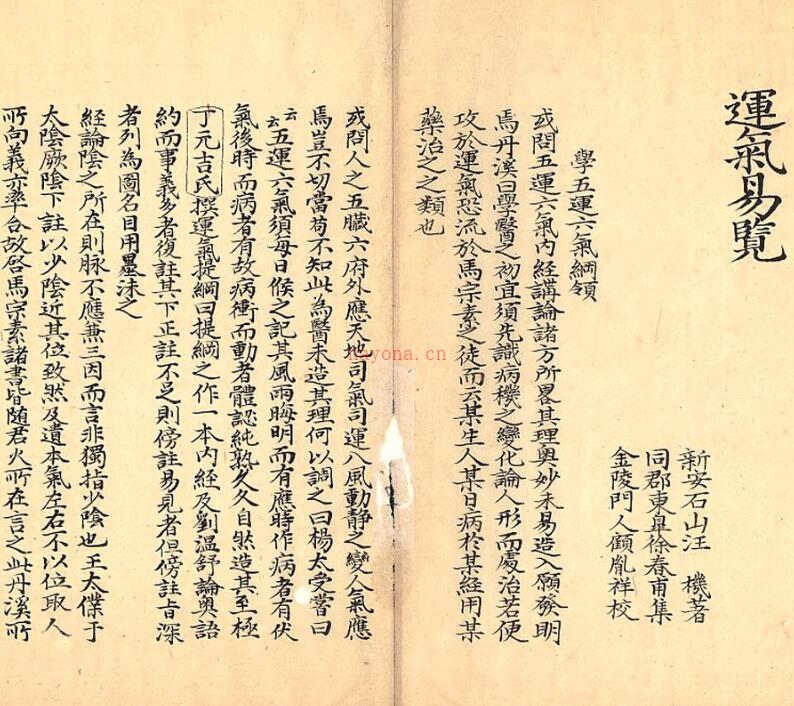 運氣易覽
新安石山汪 機著
同郡東臯徐春甫集
金陵門人顧胤祥校
學五運六氣綱領
或問五運六氣內經講論諸方所畧其理奧妙未易造入願發明
焉丹溪曰學醫之初宜須先識病機之變化論人形而處治若便
攻於運氣恐流於馬宗素之徒而云某生人某日病於某經用某
藥治之之類也
或問人之五臟六府外應天地司氣司運八風動靜之變人氣應
焉豈不切當茍不知此為醫未造其理何以調之曰楊太受嘗曰
云云五運六氣須每日候之記其風雨晦明而有應時作病者有伏
氣後時而病者有故病衝而動者體認純熟久久自然造其至極
丁元吉氏撰運氣提綱曰提綱之作一本內經及劉溫舒論奧語
約而事義易者復註其下正註不足則傍註易見者但傍註旨深
者列為圖名目用墨沫之
經論陰之所在則脉不應兼三因而言非獨指少陰也王太僕于
太陰厥陰下註以少陰近其位致然及遺本氣左右不以位取人
所向義亦率合故啓馬宗素諸書皆隨君火所在言之此丹溪所
nayona.cn